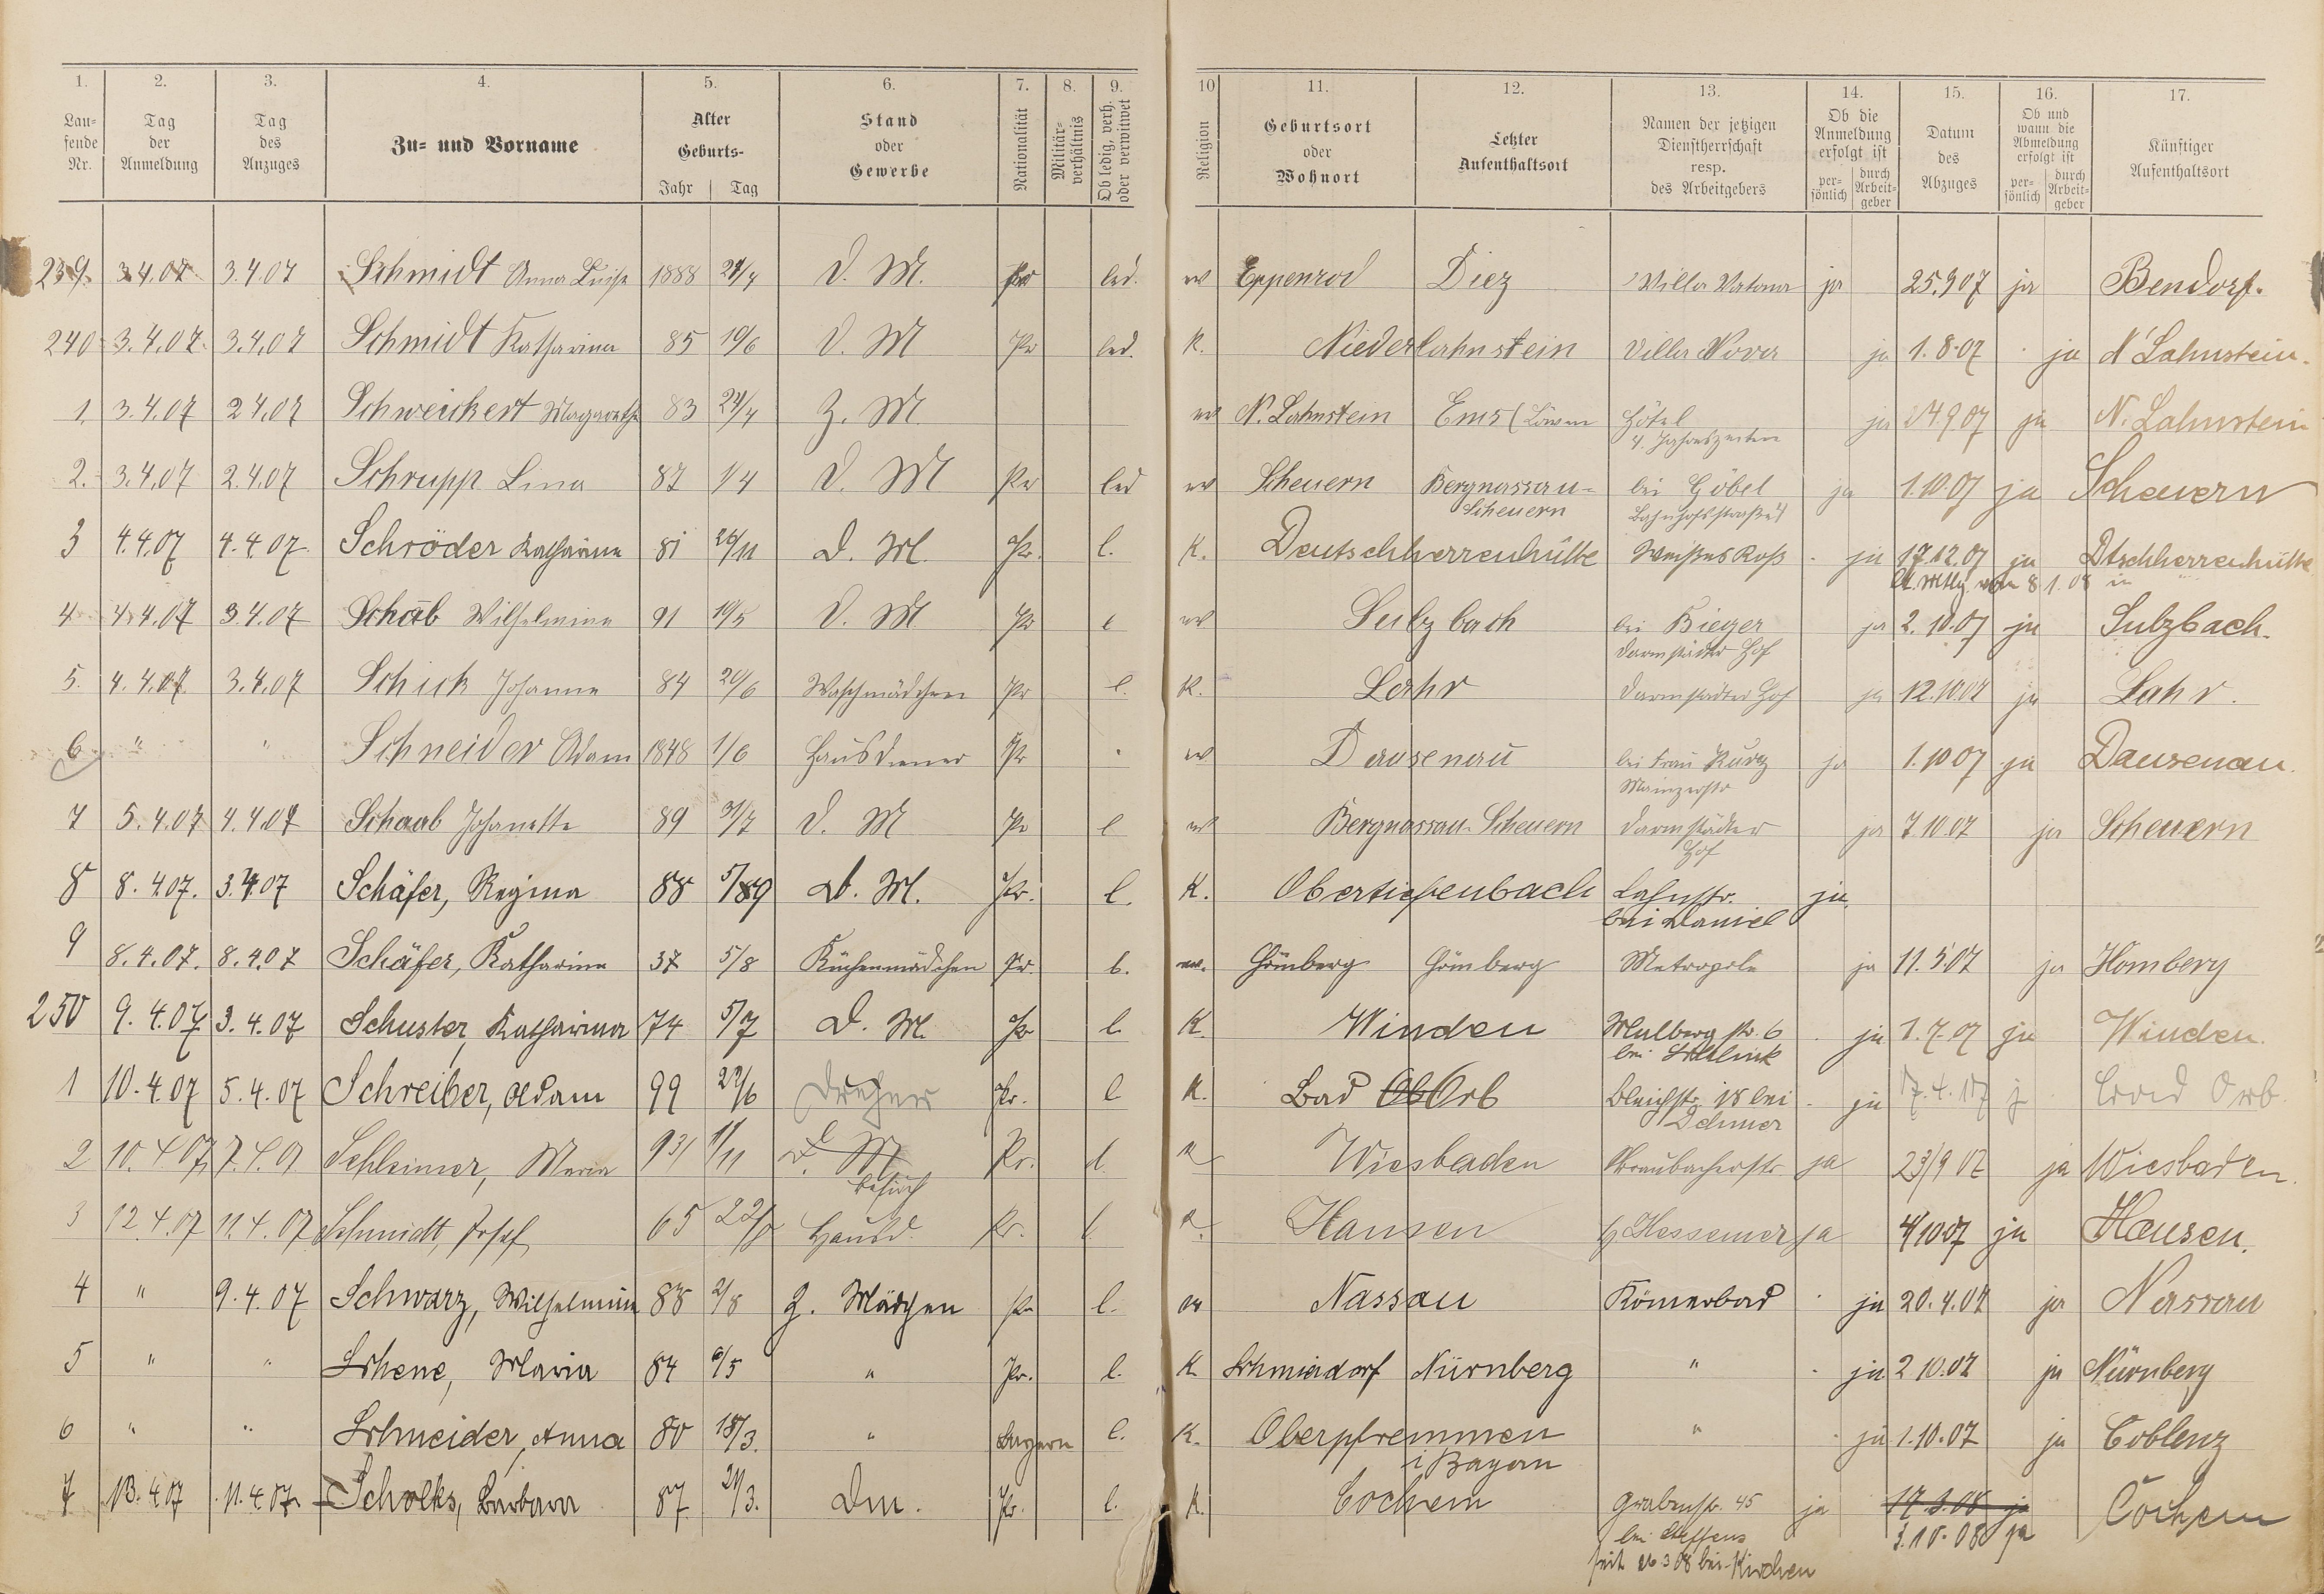 1. 2. 3. 4. 5. 6. 7. 8. 9. 10 11. 12. 13. 14. 15. 16. 17.
Lau-
fende
Nr.
Tag
der
Anmeldung
Tag
des
Anzuges
Zu- und Vorname
Alter
Geburts-
Jahr Tag
Stand
oder
Gewerbe
Nationalität
Militär-
verhältnis
Ob ledig, verh.
oder verwitwet
Religion
Geburtsort
oder
Wohnort
Letzter
Aufenthaltsort
Namen der jetzigen
Dienstherrschaft
resp.
des Arbeitgebers
Ob die
Anmeldung
erfolgt ist
per-
sönlich
durch
Arbeit-
geber
Datum
des
Abzuges
Ob und
wann die
Abmeldung
erfolgt ist
per-
sönlich
durch
Arbeit-
geber
Künftiger
Aufenthaltsort
239. 3.4.07. 3.4.07 Schmidt Anna Luise 1888 D. M. Pr led. ev Eppenrod Diez Villa ja 25.9 07 ja Bendorf.
240 3.4.07. 3.4.07 Schmidt Katharina 85 19/6 D. M Pr led. K. Niederlahnstein Villa Nova ja 1.8.07 ja N'Lahnstein.
1. 3.4.07 2 4.07 Schweickert Margarethe 83 Z. M. ev N. Lahnstein Ems (Löwen Hôtel ja 24.9 07 ja N. Lahnstein
4. Jahreszeiten
2. 3.4.07 2.4.07 Schrupp Lina 87 1/4 D. M Pr led ev Scheuern Bergnassau- bei Göbel ja 1.10.07 ja Scheuern
Scheuern Bahnhofsstraße
3 4.4.07 4.4.07. Schröder Katharina 81 26/11 D. M. Pr. l. K. Deutschherrenhütte Weißes Roß ja 17.12.07 ja Dtschherrenhütte
vom 8 1. 08 in
4 4.4.07 3.4.07 Schab Wilhelmine 91 10/5 D. M Pr l ev Sulzbach bei Bieger ja 2.10.07 ja Sulzbach.
Darmstädter Hof
5. 4.4.07. 3.4.07 Schick Johanna 84 20/6 Waschmädchen Pr l. K. Lahr Darmstädter Hof ja 12.10.07 ja Lahr.
6 " " Schneider Adam 1848 1/6 Hausdiener Pr " ev Dausenau bei Frau Kurz ja 1.10 07 ja Dausenau.
Mainzerstr
7 5.4.07 4.4.07 Schaab Johanette 89 31/7 D. M Pr l ev Bergnassau-Scheuern Darmstädter ja 7 10 07 ja Scheuern
Hof
8 8.4.07. 3.4.07 Schäfer, Regina 88 D. M. Pr. l. K. Obertiefenbach Lahnstr. ja
bei Daniel
9 8.4.07. 8.4.07 Schäfer, Katharina 37 5/8 Küchenmädchen Pr. l. ev. Hömberg Hömberg Metropole ja 11.5.07 ja Homberg
250 9.4.07 3.4.07 Schuster, Katharina 74 5/7 D. M. Pr l. K. Winden Malbergstr. 6 ja 1.7.07 ja Winden.
bei
1 10.4.07 5.4.07 Schreiber, Adam 99 Pr. l K. Bad Ob Orb Bleichstr. 18 bei ja 17.4.07 j Bad Orb.
2 10.4.07 7.4.07 Schleimer, Maria 93 1/11 D. M Pr. l. K Wiesbaden Braubacherstr ja 23/9 07 ja Wiesbaden.
Besuch
3 12.4.07 11.4.07 Schmidt, Josef 65 Hausd. Pr. l K. Hausen Hessemer ja 4/10 07 ja Hausen.
4 " 9.4.07 Schwarz, Wilhelmine 88 2/8 Z. Mädchen Pr l. ev Nassau Römerbad ja 20.4.07 ja Nassau
5 " " Schene, Maria 84 6/5 " Pr. l. K. Nürnberg " ja 2 10.07 ja Nürnberg
6 " " Schneider, Anna 80 18/3. " Bayern l. K. Oberpfremmen " ja 1.10.07 ja Coblenz
i Bayern
7 13.4.07 11.4.07. Scholks, Barbara 87 21/3. Dm. Pr. l. K. Cochem Grabenstr. 45 ja 17.3.08 ja Cochem
bei Steffens 3.10.08 ja
seit 26 3 08 bei Kirchen